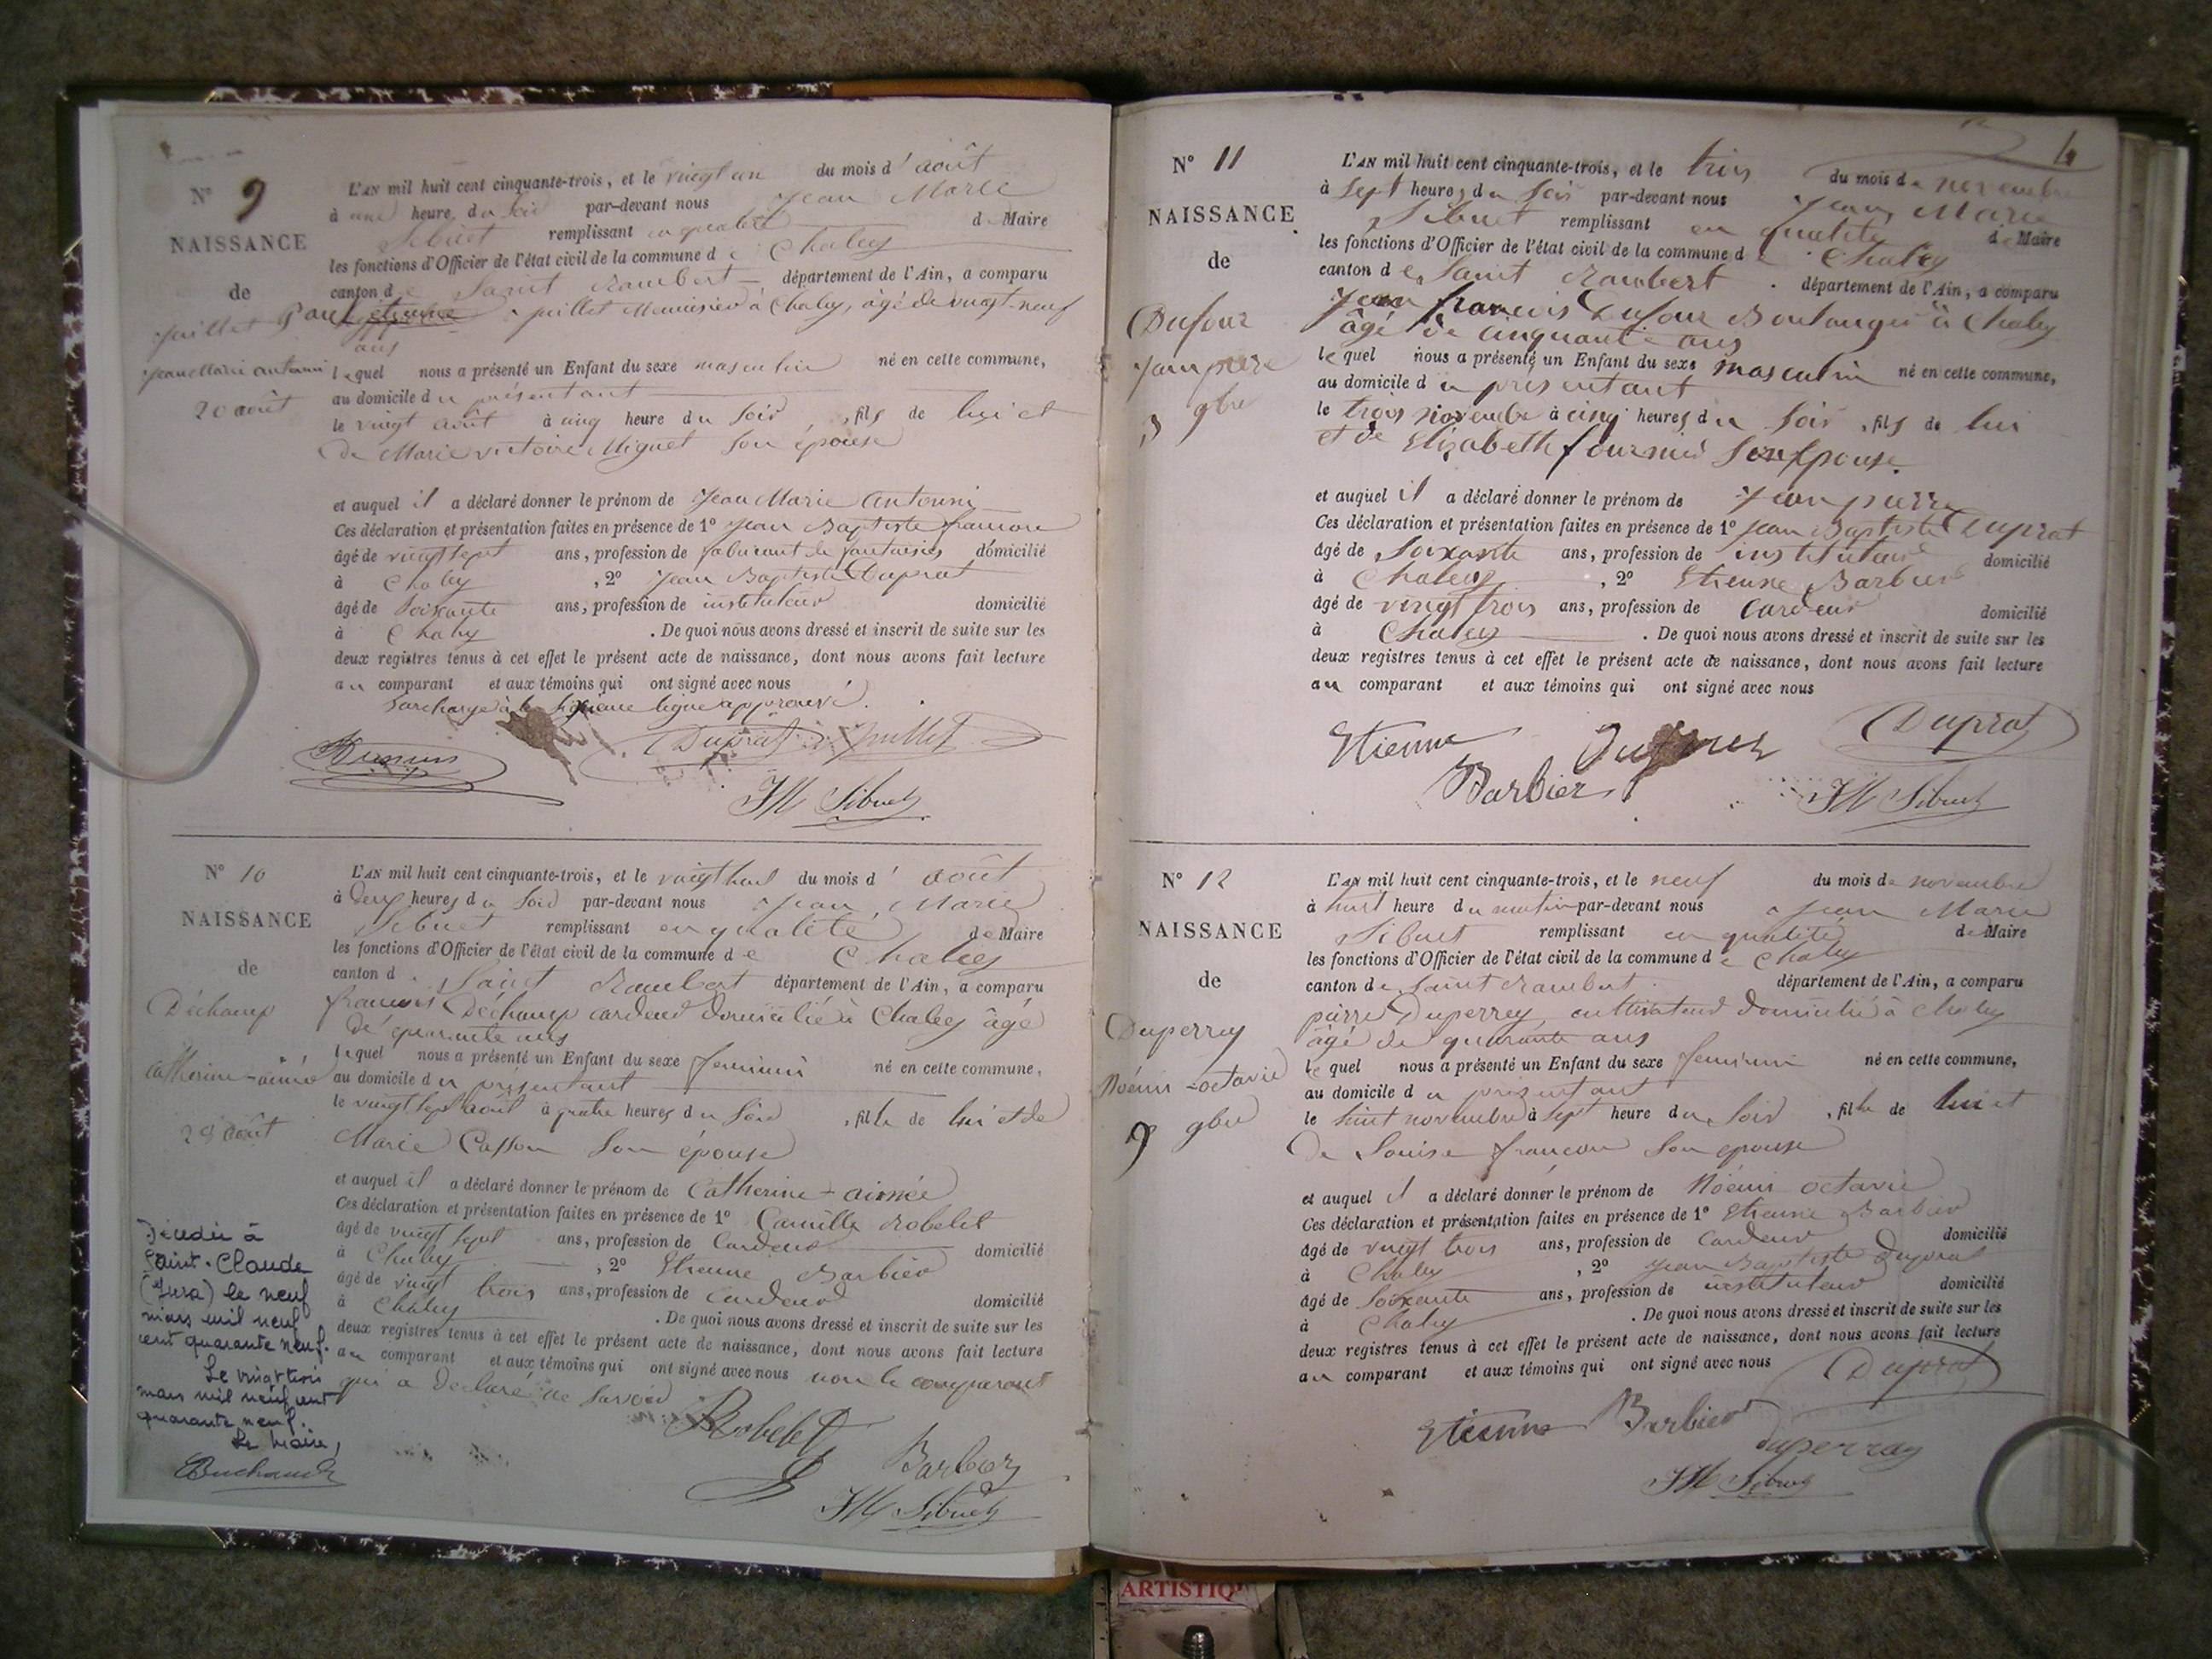 N° 9
NAISSANCE
de
Juillet
Jean Marie antonin
20 août
L'AN mil huit cent cinquante-trois, et le vingt un du mois d'août
à une heure du soir par-devant nous Jean Marie
Sibuet remplissant en qualité de Maire
les fonctions d'Officier de l'état civil de la commune de Chaley
canton de Saint Rambert département de l'Ain, a comparu
Juillet Menuisier à Chaley, âgé de vingt-neuf
ans
lequel nous a présenté un Enfant du sexe masculin né en cette commune,
au domicile du présentant
le vingt août à cinq heure du soir, fils de lui et
de Marie victoire Miguet son épouse
et auquel il a déclaré donner le prénom de Jean Marie Antonin
Ces déclaration et présentation faites en présence de 1° Jean Baptiste
âgé de vingt sept ans, profession de fabricant de fantaisies domicilié
à Chaley, 2° Jean Baptiste Duprat
âgé de soixante ans, profession de instituteur domicilié
à Chaley. De quoi nous avons dressé et inscrit de suite sur les
deux registres tenus à cet effet le présent acte de naissance, dont nous avons fait lecture
au comparant et aux témoins qui ont signé avec nous
Surcharge à la sixième ligne approuvé.
Duprat Juillet
JM Sibuet
N° 10
NAISSANCE
de
Déchamp
Catherine-aimée
août
L'AN mil huit cent cinquante-trois, et le vingt huit du mois d'août
à deux heures du soir par-devant nous Jean Marie
Sibuet remplissant en qualité de Maire
les fonctions d'Officier de l'état civil de la commune de Chaley
canton d Saint Rambert département de l'Ain, a comparu
françois Déchamp cardeur domicilié à Chaley âgé
de quarante ans
lequel nous a présenté un Enfant du sexe feminin né en cette commune,
au domicile du présentant
le vingt sept août à quatre heures du soir, fille de lui et de
Marie Casson son épouse
et auquel il a déclaré donner le prénom de Catherine-aimée
Ces déclaration et présentation faites en présence de 1° Camille Robelet
âgé de vingt sept ans, profession de Cardeur domicilié
à Chaley, 2° Etienne Barbier
âgé de vingt trois ans, profession de Cardeur domicilié
à Chaley. De quoi nous avons dressé et inscrit de suite sur les
deux registres tenus à cet effet le présent acte de naissance, dont nous avons fait lecture
au comparant et aux témoins qui ont signé avec nous non le comparant
qui a déclaré ne savoir
Robelet
Barbier
JM Sibuet
Décédée à
Saint-Claude
(Jura) le neuf
mars mil neuf
cent quarante neuf.
Le vingt trois
mars mil neuf cent
quarante neuf.
Le Maire,
4
N° 11
NAISSANCE
de
Dufour
Jean pierre
3 9bre
L'AN mil huit cent cinquante-trois, et le trois du mois de novembre
à sept heures du soir par-devant nous Jean Marie
Sibuet remplissant en qualité de Maire
les fonctions d'Officier de l'état civil de la commune d Chaley
canton de Saint Rambert département de l'Ain, a comparu
Jean françois Dufour Boulanger à Chaley
âgé de cinquante ans
lequel nous a présenté un Enfant du sexe masculin né en cette commune,
au domicile du présentant
le trois novembre à cinq heures du soir, fils de lui
et de Elizabeth fournier Son Epouse.
et auquel il a déclaré donner le prénom de Jean pierre
Ces déclaration et présentation faites en présence de 1° Jean Baptiste Duprat
âgé de soixante ans, profession de instituteur domicilié
à Chaley, 2° Etienne Barbier
âgé de vingt trois ans, profession de Cardeur domicilié
à Chaley. De quoi nous avons dressé et inscrit de suite sur les
deux registres tenus à cet effet le présent acte de naissance, dont nous avons fait lecture
au comparant et aux témoins qui ont signé avec nous
Etienne Duprat
Barbier
JM Sibuet
N° 12
NAISSANCE
de
Duperrey
Noémi-octavie
9 9bre
L'AN mil huit cent cinquante-trois, et le neuf du mois de novembre
à huit heure du matin par-devant nous Jean Marie
Sibuet remplissant en qualité de Maire
les fonctions d'Officier de l'état civil de la commune de Chaley
canton de Saint Rambert département de l'Ain, a comparu
pierre Duperrey, cultivateur domicilié à Chaley
âgé de quarante ans
lequel nous a présenté un Enfant du sexe feminin né en cette commune,
au domicile du présentant
le huit novembre à sept heure du soir, fille de lui et
de Louise françon son epouse
et auquel il a déclaré donner le prénom de Noémi octavie
Ces déclaration et présentation faites en présence de 1° Etienne Barbier
âgé de vingt trois ans, profession de Cardeur domicilié
à Chaley, 2° Jean Baptiste Duprat
âgé de soixante ans, profession de instituteur domicilié
à Chaley. De quoi nous avons dressé et inscrit de suite sur les
deux registres tenus à cet effet le présent acte de naissance, dont nous avons fait lecture
au comparant et aux témoins qui ont signé avec nous
Duprat
Etienne Barbier
duperray
JM Sibuet
ARTISTIQ